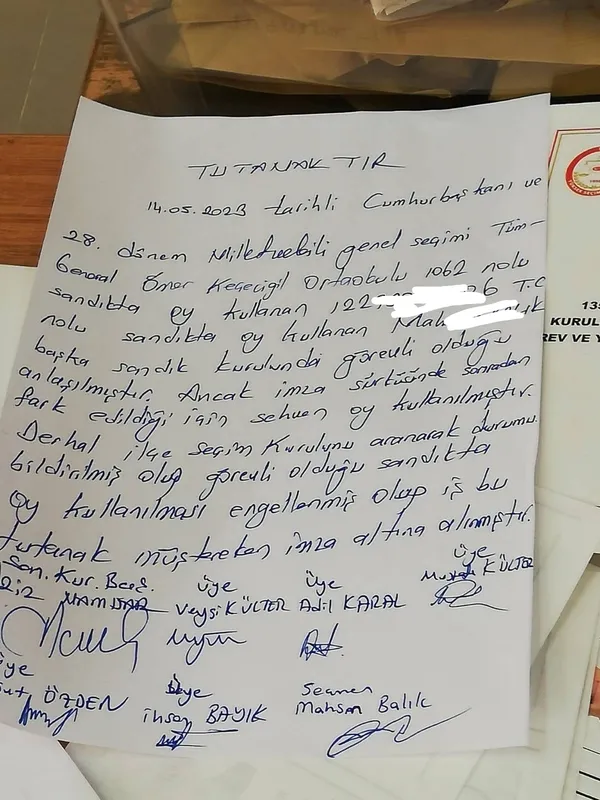 TUTANAKTIR
14.05.2023 tarihli Cumhurbaşkanı ve
28. dönem Milletvekili genel seçimi Tüm-
General Ömer Keçecigil Ortaokulu 1062 nolu
sandıkta oy kullanan 122 06 T.C
nolu sandıkta oy kullanan Mah
başka sandık kurulunda görevli olduğu
anlaşılmıştır. Ancak imza sürküsünde sonradan
fark edildiği için sehven oy kullanılmıştır.
Derhal ilçe seçim Kurulunu aranarak durumu
bildirilmiş olup görevli olduğu sandıkta
oy kullanılması engellenmiş olup iş bu
tutanak müştereken imza altına alınmıştır.
San. Kur. Başk. Üye Üye Üye
NAMDAR Veysi KÜLTER Adil KARAL KÜLTER
Üye Üye Seçmen
ÖZDEN İhsan BAYIK Mahsan Balık
135
KURUL
REV VE Y